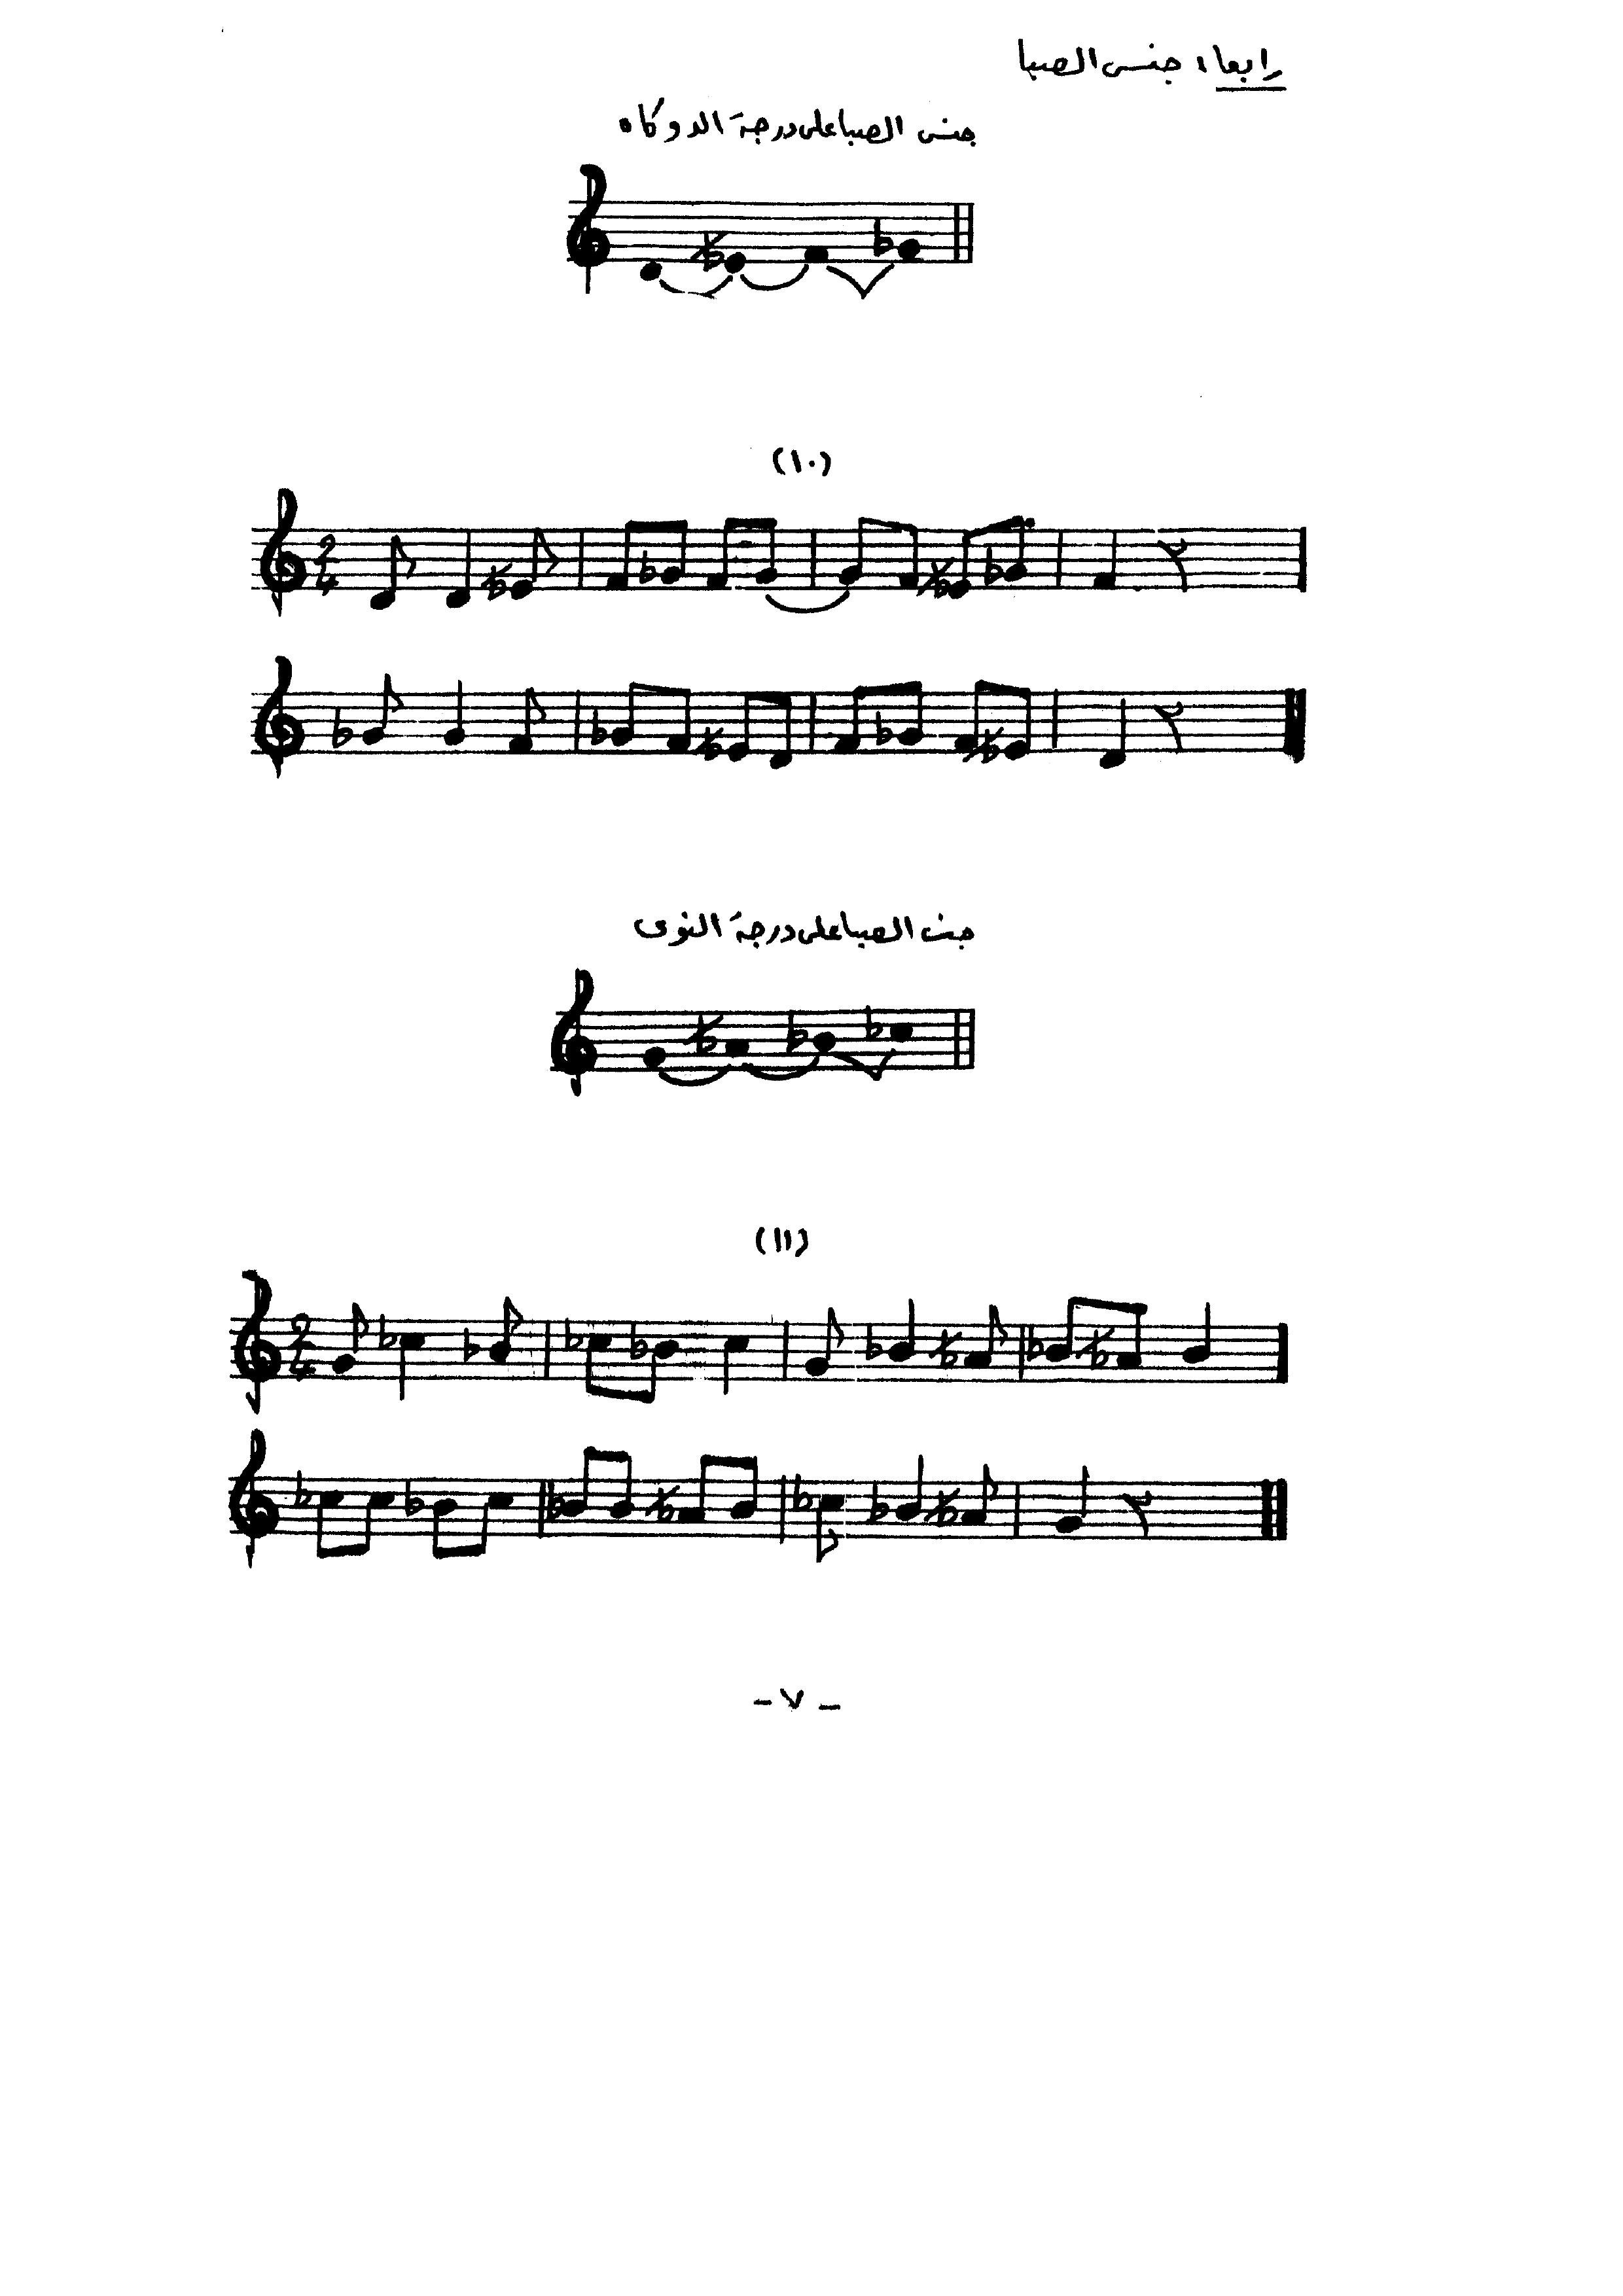 رابعا: جنس الصبا
جنس الصبا على درجة الدوكاه
(١٠)
2
4
جنس الصبا على درجة النوى
(١١)
2
4
- ٧ -